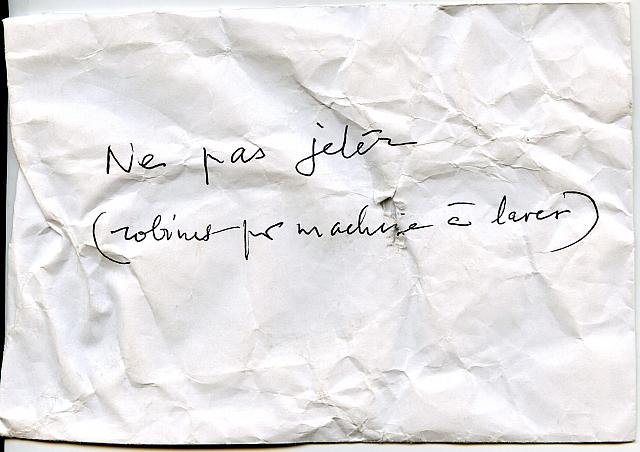 Ne pas jeter
(robinet pr machine à laver)